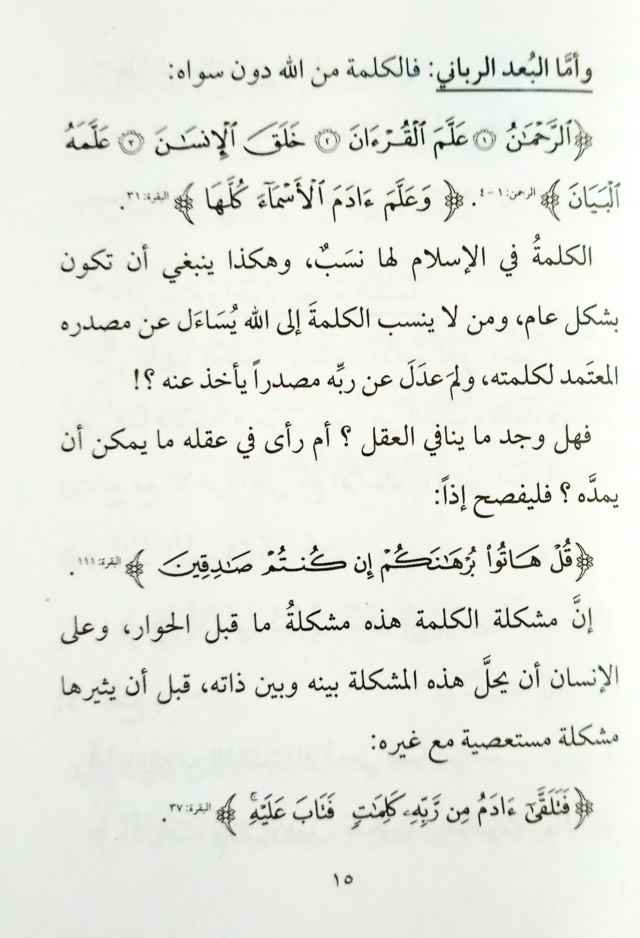 وأمَّا البُعد الرباني: فالكلمة من الله دون سواه:
﴿ٱلرَّحۡمَٰنُ ١ عَلَّمَ ٱلۡقُرۡءَانَ ٢ خَلَقَ ٱلۡإِنسَٰنَ ٣ عَلَّمَهُ
ٱلۡبَيَانَ﴾ الرحمن: ١-٤. ﴿وَعَلَّمَ ءَادَمَ ٱلۡأَسۡمَآءَ كُلَّهَا﴾ البقرة: ٣١.
الكلمةُ في الإسلام لها نسَبٌ، وهكذا ينبغي أن تكون
بشكل عام، ومن لا ينسب الكلمةَ إلى الله يُسَاءَل عن مصدره
المعتَمد لكلمته، ولمَ عدَلَ عن ربِّه مصدراً يأخذ عنه ؟!
فهل وجد ما ينافي العقل ؟ أم رأى في عقله ما يمكن أن
يمدَّه ؟ فليفصح إذاً:
﴿قُلۡ هَاتُواْ بُرۡهَٰنَكُمۡ إِن كُنتُمۡ صَٰدِقِينَ﴾ البقرة: ١١١.
إنَّ مشكلة الكلمة هذه مشكلةُ ما قبل الحوار، وعلى
الإنسان أن يحلَّ هذه المشكلة بينه وبين ذاته، قبل أن يثيرها
مشكلة مستعصية مع غيره:
﴿فَتَلَقَّىٰٓ ءَادَمُ مِن رَّبِّهِۦ كَلِمَٰتٖ فَتَابَ عَلَيۡهِۚ﴾ البقرة: ٣٧.
١٥